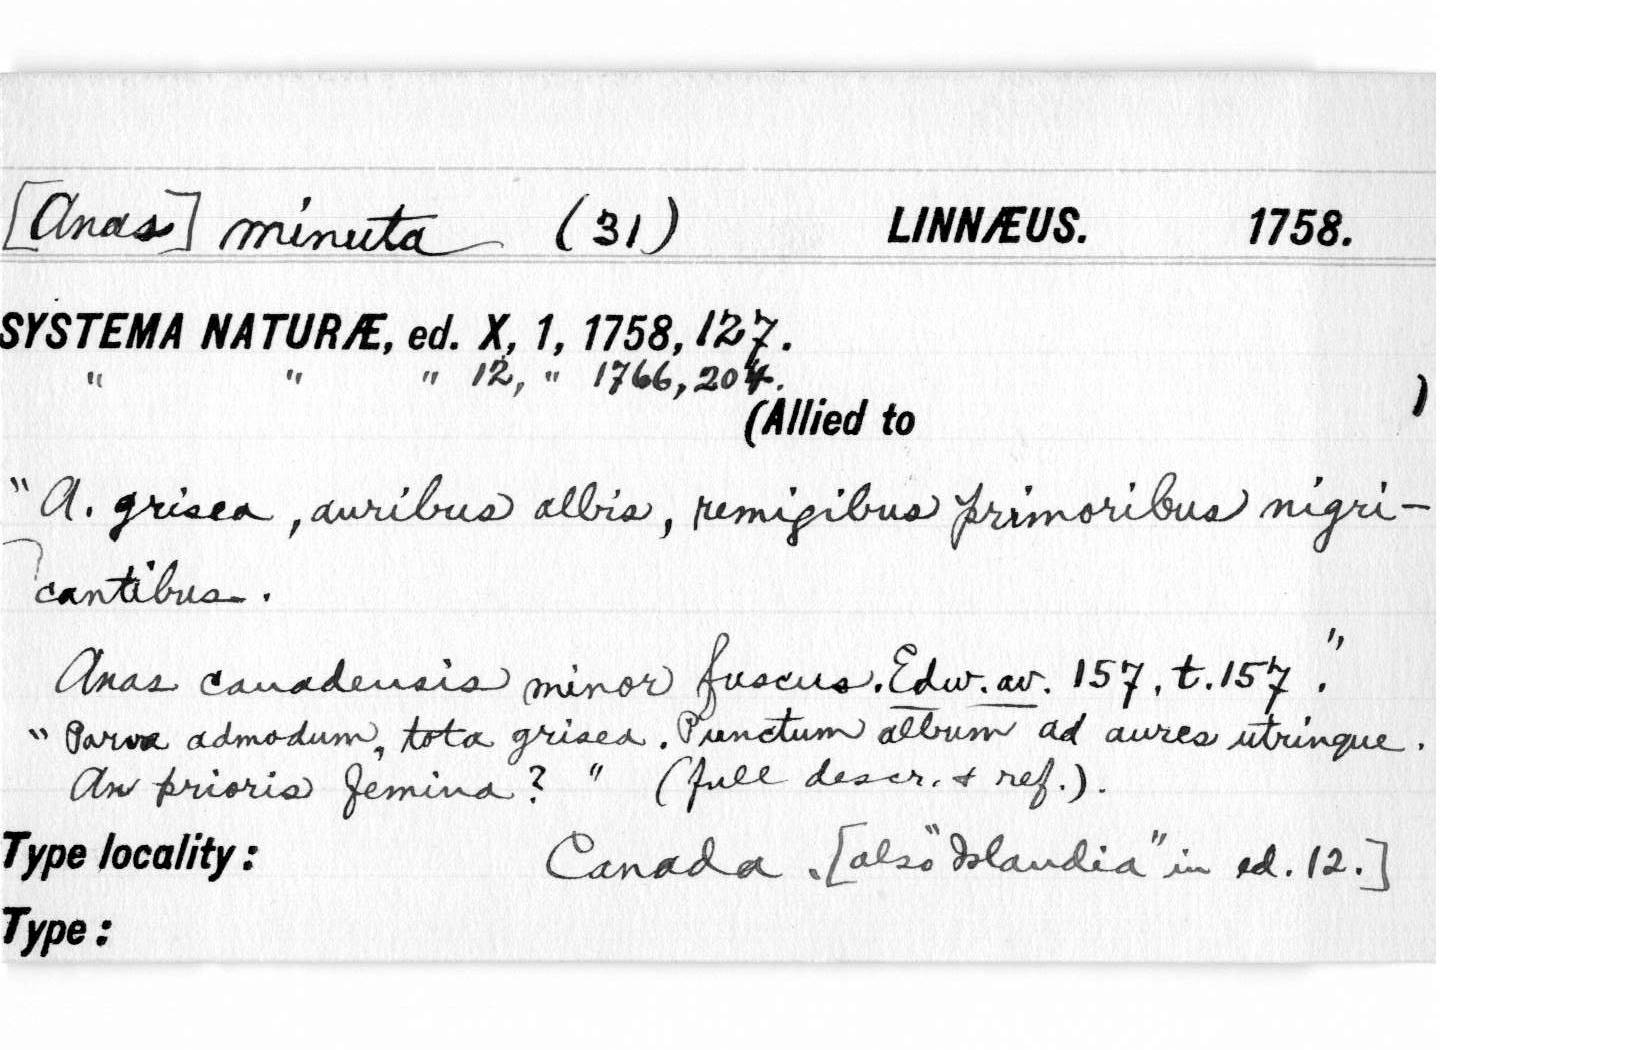 [Anas] minuta (31) LINNÆUS. 1758.
SYSTEMA NATURÆ, ed. X, 1, 1758, 127.
" " " 12, " 1766, 204.
(Allied to )
"A. grisea, auribus albis, remigibus primoribus nigri-
cantibus.
Anas canadensis minor fuscus. Edw. av. 157, t. 157."
"Parva admodum, tota grisea. Punctum album ad aures utrinque.
An prioris femina?" (full descr. & ref.).
Type locality: Canada. [also "Islandia" in ed. 12.]
Type: